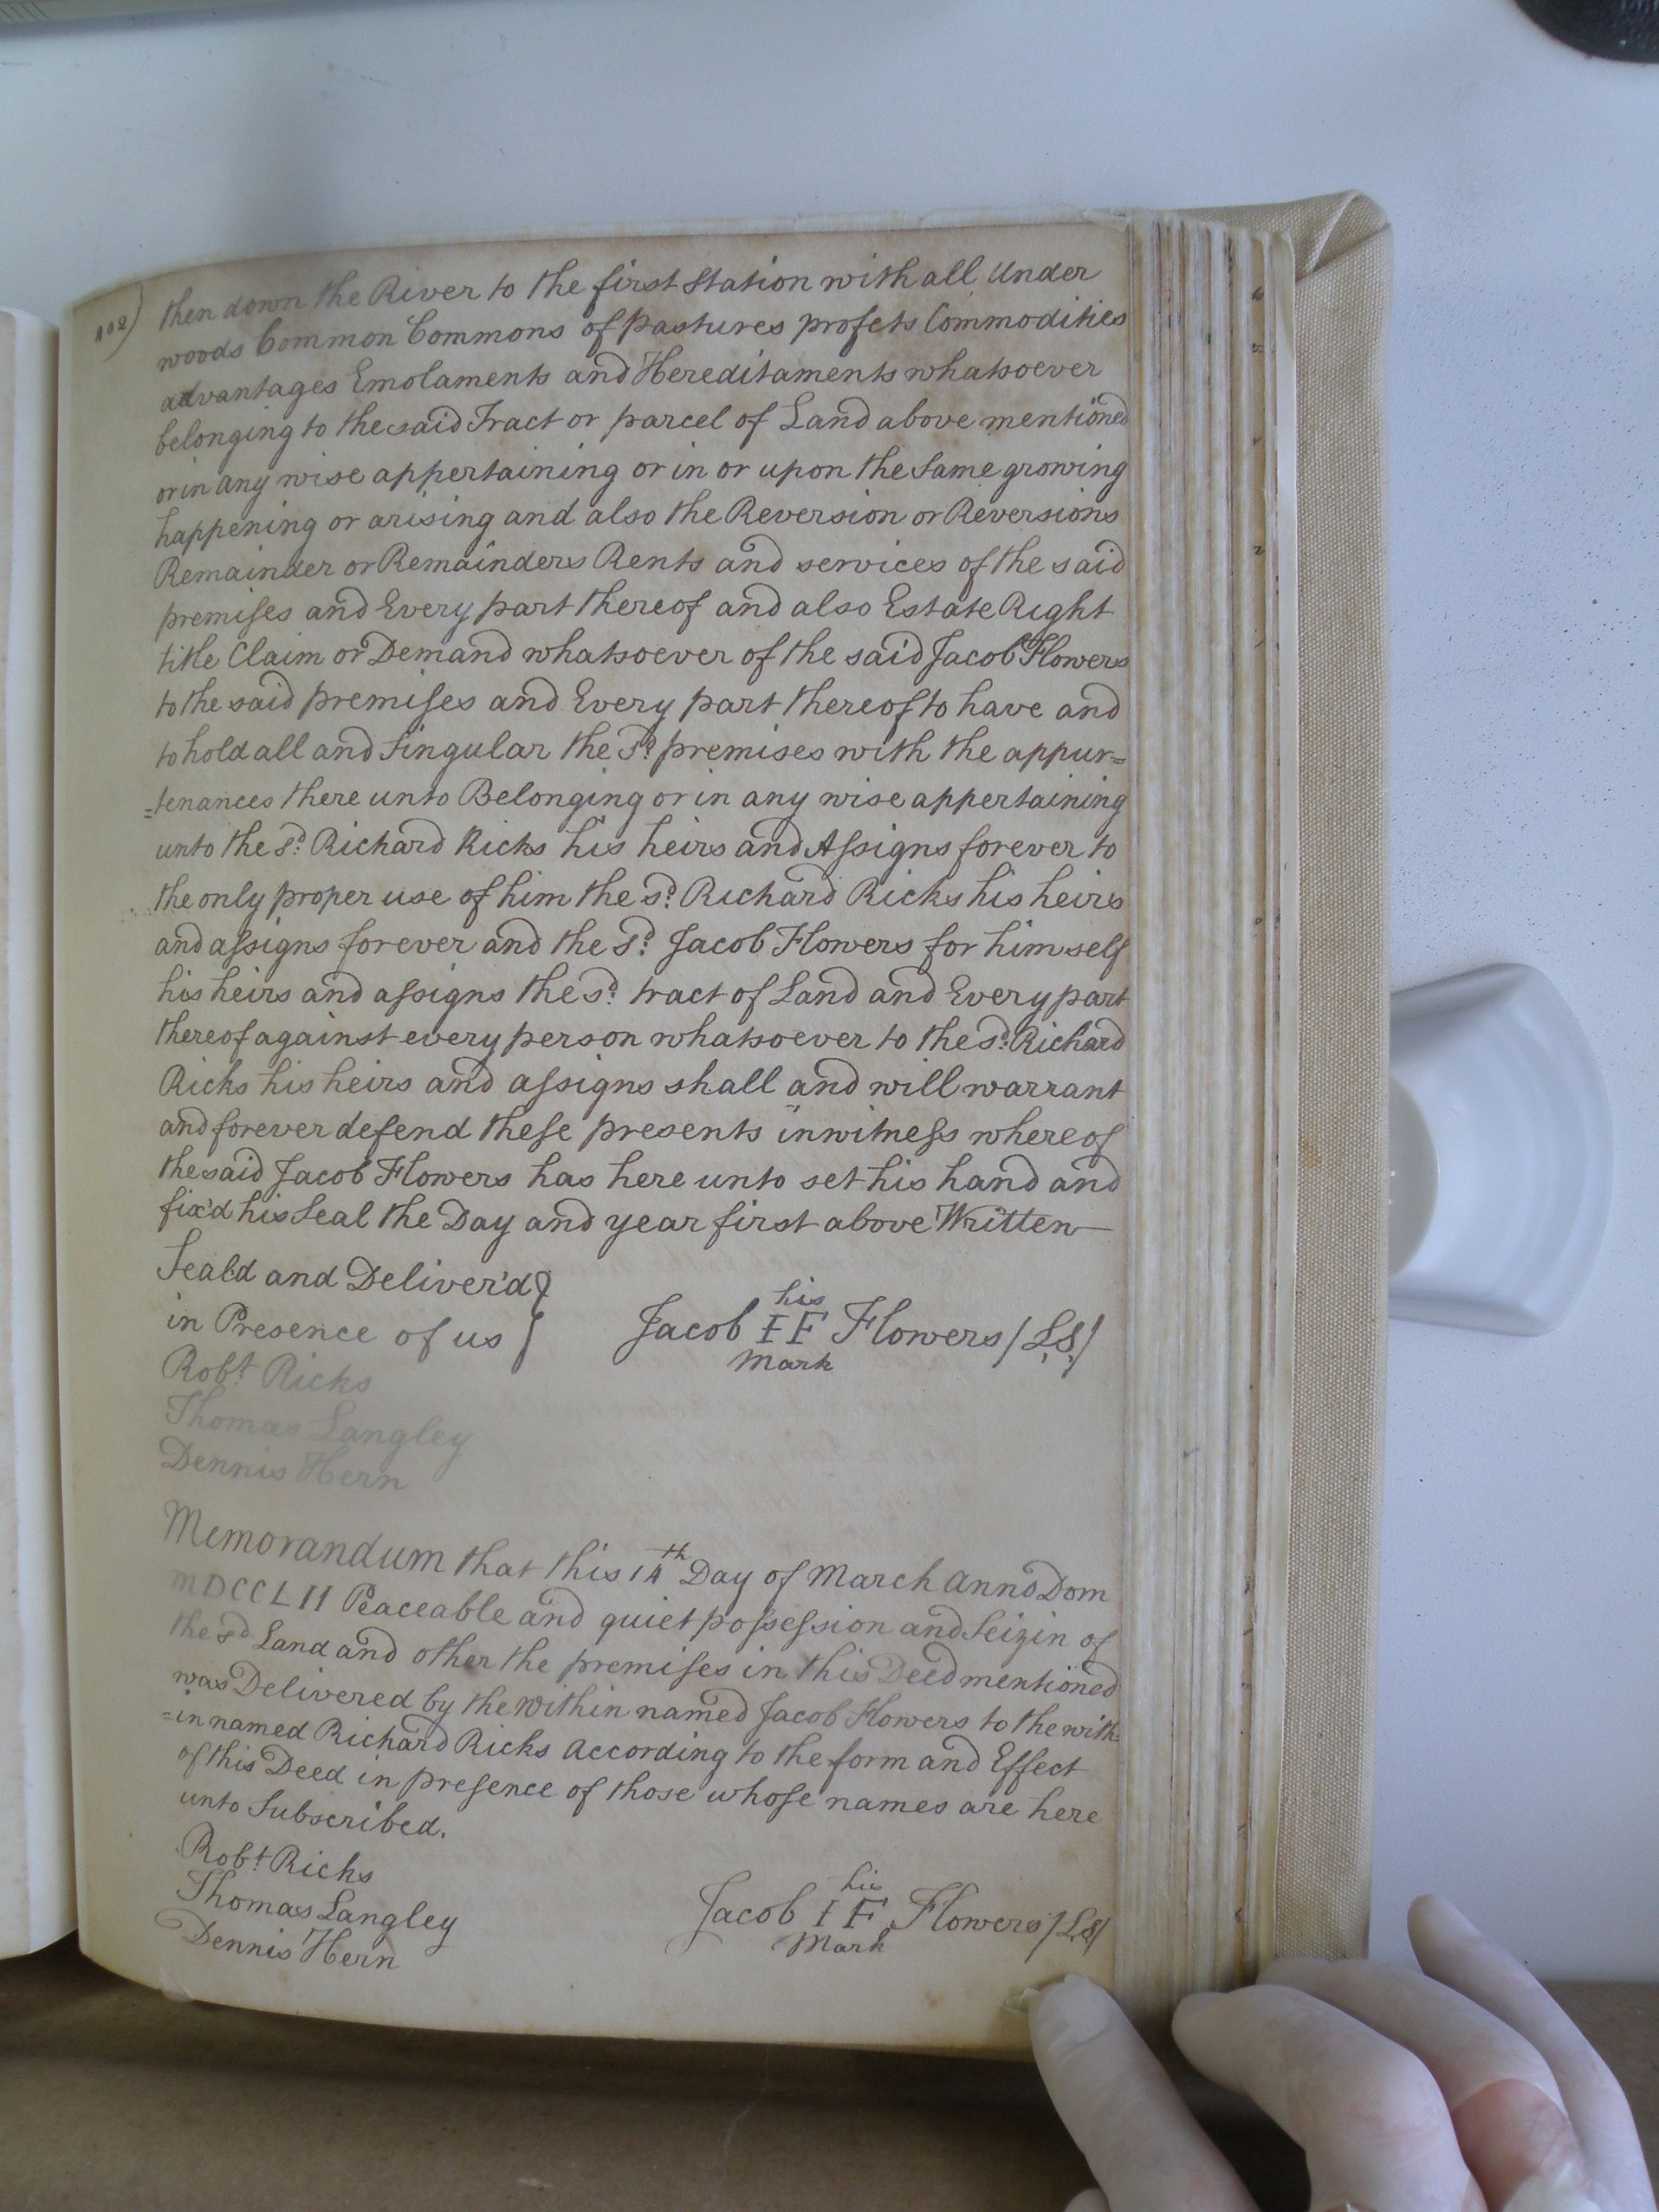 402)
then down the River to the first Station with all Under
woods Common Commons of pastures profets Commodities
advantages Emolaments and Hereditaments whatsoever
belonging to the said Tract or parcel of Land above mentioned
or in any wise appertaining or in or upon the Same growing
happening or arising and also the Reversion or Reversions
Remainder or Remainders Rents and services of the said
premises and Every part thereof and also Estate Right
title Claim or Demand whatsoever of the said Jacob Flowers
to the said premises and Every part thereof to have and
to hold all and Singular the Sd. premises with the appur=
=tenances there unto Belonging or in any wise appertaining
unto the Sd. Richard Ricks his heirs and Assigns forever to
the only proper use of him the sd. Richard Ricks his heirs
and assigns forever and the Sd. Jacob Flowers for him self
his heirs and assigns the sd. tract of Land and Every part
thereof against every person whatsoever to the sd. Richard
Ricks his heirs and assigns shall and will warrant
and forever defend these presents in witness where of
the said Jacob Flowers has here unto set his hand and
fix'd his Seal the Day and year first above Written—
Seald and Deliver'd }
in Presence of us }
his
Jacob I F Flowers /L.S./
Mark
Robt. Ricks
Thomas Langley
Dennis Hern
Memorandum that this 14th Day of March Anno Dom
MDCCLII Peaceable and quiet possession and Seizin of
the sd Land and other the premises in this Deed mentioned
was Delivered by the within named Jacob Flowers to the with
=in named Richard Ricks According to the form and Effect
of this Deed in presence of those whose names are here
unto Subscribed.
Robt. Ricks
Thomas Langley
Dennis Hern
his
Jacob I F Flowers /LS/
Mark